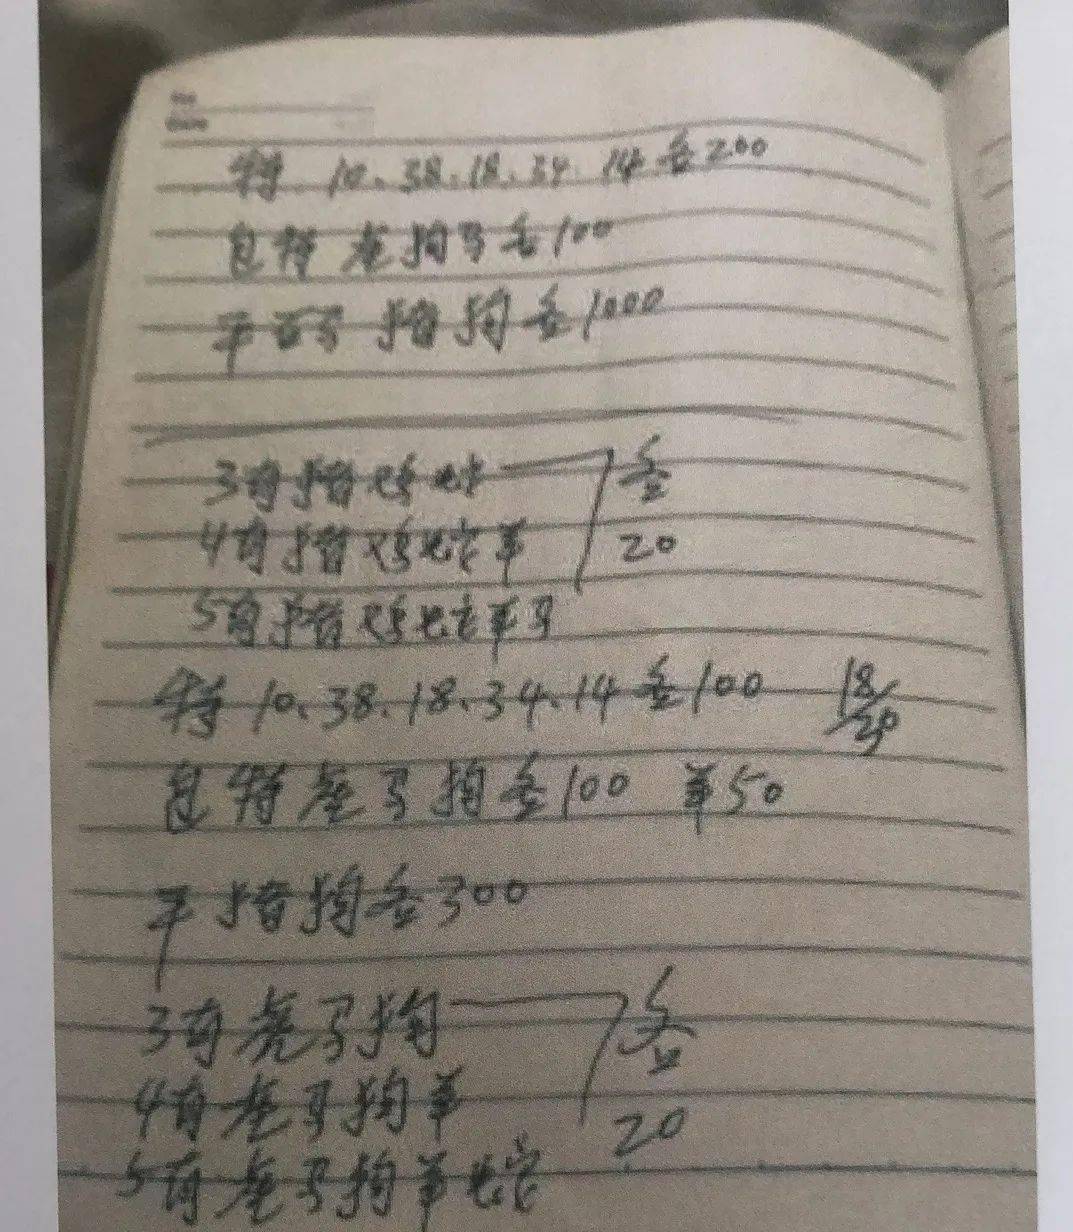 No
Date
特 10、38、18、34、14各200
包特 虎狗马各100
平 马 猪狗各1000
3肖猪鸡蛇 各
4肖猪鸡蛇羊 20
5肖猪鸡蛇羊马
特10、38、18、34、14各100 18/20
包特虎马狗各100 羊50
平猪狗各300
3肖虎马狗 各
4肖虎马狗羊 20
5肖虎马狗羊蛇